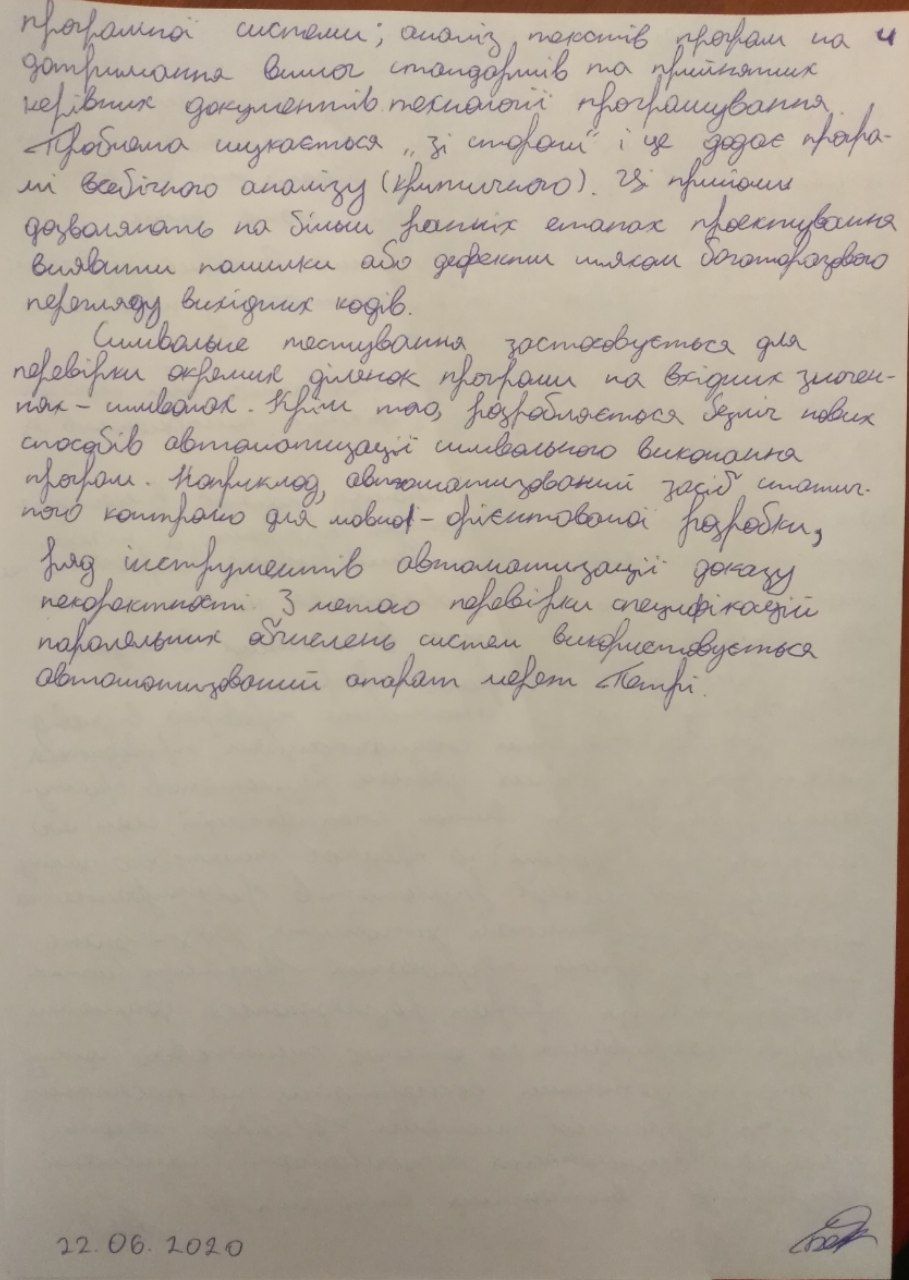 програмної системи; аналіз текстів програм на 4
дотримання вимог стандартів та прийнятих
керівних документів технології програмування.
Проблема шукається „зі сторони“ і це додає програ-
мі всебічного аналізу (критичного). Ці прийоми
дозволяють на більш ранніх етапах проектування
виявити помилки або дефекти шляхом багаторазового
перегляду вихідних кодів.
Символьне тестування застосовується для
перевірки окремих ділянок програми на вхідних значен-
нях – символах. Крім того, розробляється безліч нових
способів автоматизації символьного виконання
програм. Наприклад, автоматизований засіб статич-
ного контролю для мовної – орієнтованої розробки,
ряд інструментів автоматизації доказу
некоректності. З метою перевірки специфікацій
паралельних обчислень систем використовується
автоматизований апарат мереж Петрі.
22.06.2020